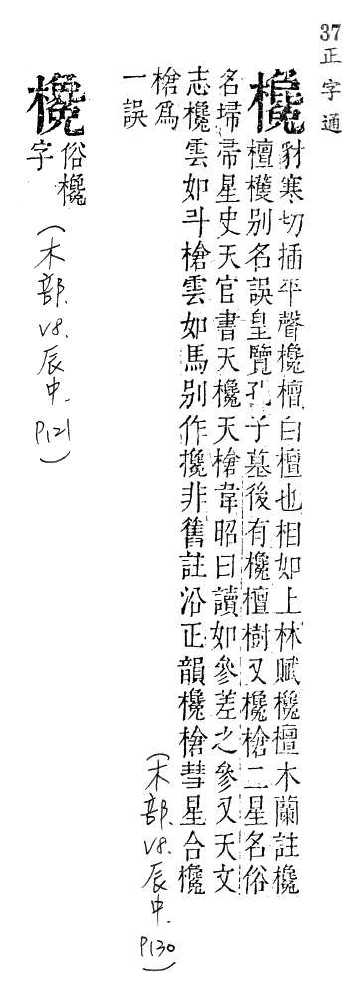 37 正字通
欃
豺寒切插平聲欃檀白檀也相如上林賦欃檀木蘭註欃
檀别名誤皇覽孔子墓後有欃檀樹又欃槍二星名俗
名埽帚星史天官書天欃天槍韋昭曰讀如參差之參又天文
志欃雲如斗槍雲如馬别作攙非舊註沿正韻欃槍彗星合欃
槍爲
一誤
(木部. V8. 辰中. P130)
俗欃
字
(木部. V8. 辰中. P121)